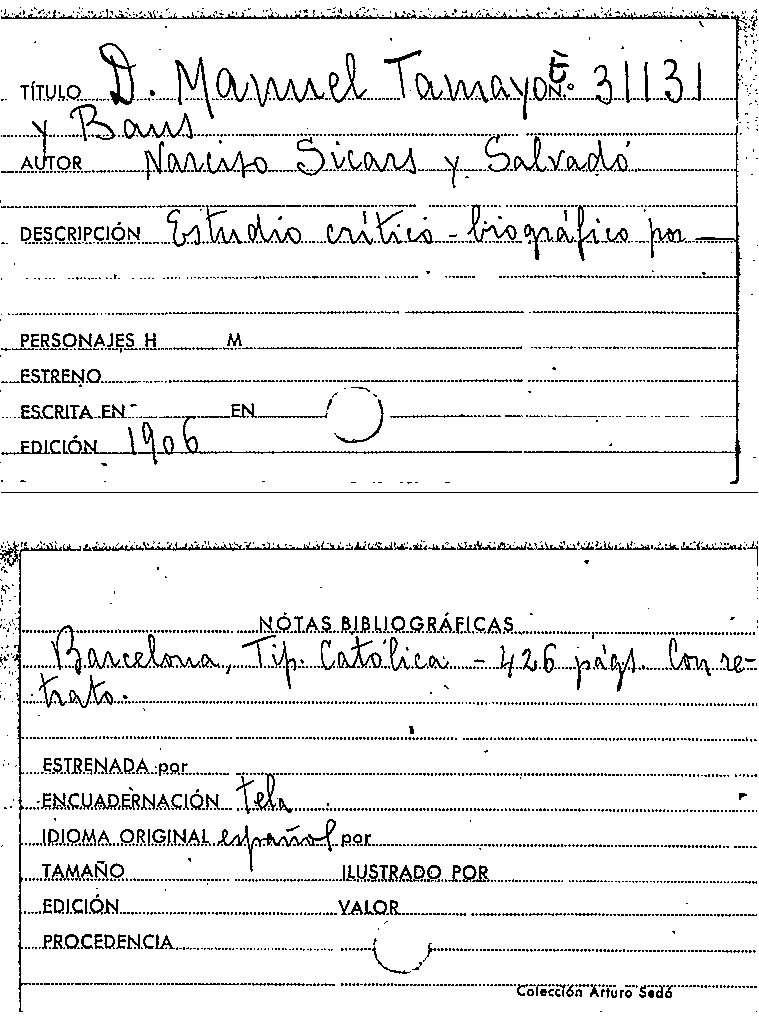 TÍTULO D. Manuel Tamayo N.º E 31131
y Baus
AUTOR Narciso Sicars y Salvadó
DESCRIPCIÓN Estudio crítico-biográfico por —
PERSONAJES H M
ESTRENO
ESCRITA EN EN
EDICIÓN 1906
NOTAS BIBLIOGRÁFICAS
Barcelona, Tip. Católica - 426 págs. Con re-
trato.
ESTRENADA por
ENCUADERNACIÓN tela
IDIOMA ORIGINAL español por
TAMAÑO ILUSTRADO POR
EDICIÓN VALOR
PROCEDENCIA
Colección Arturo Sedó